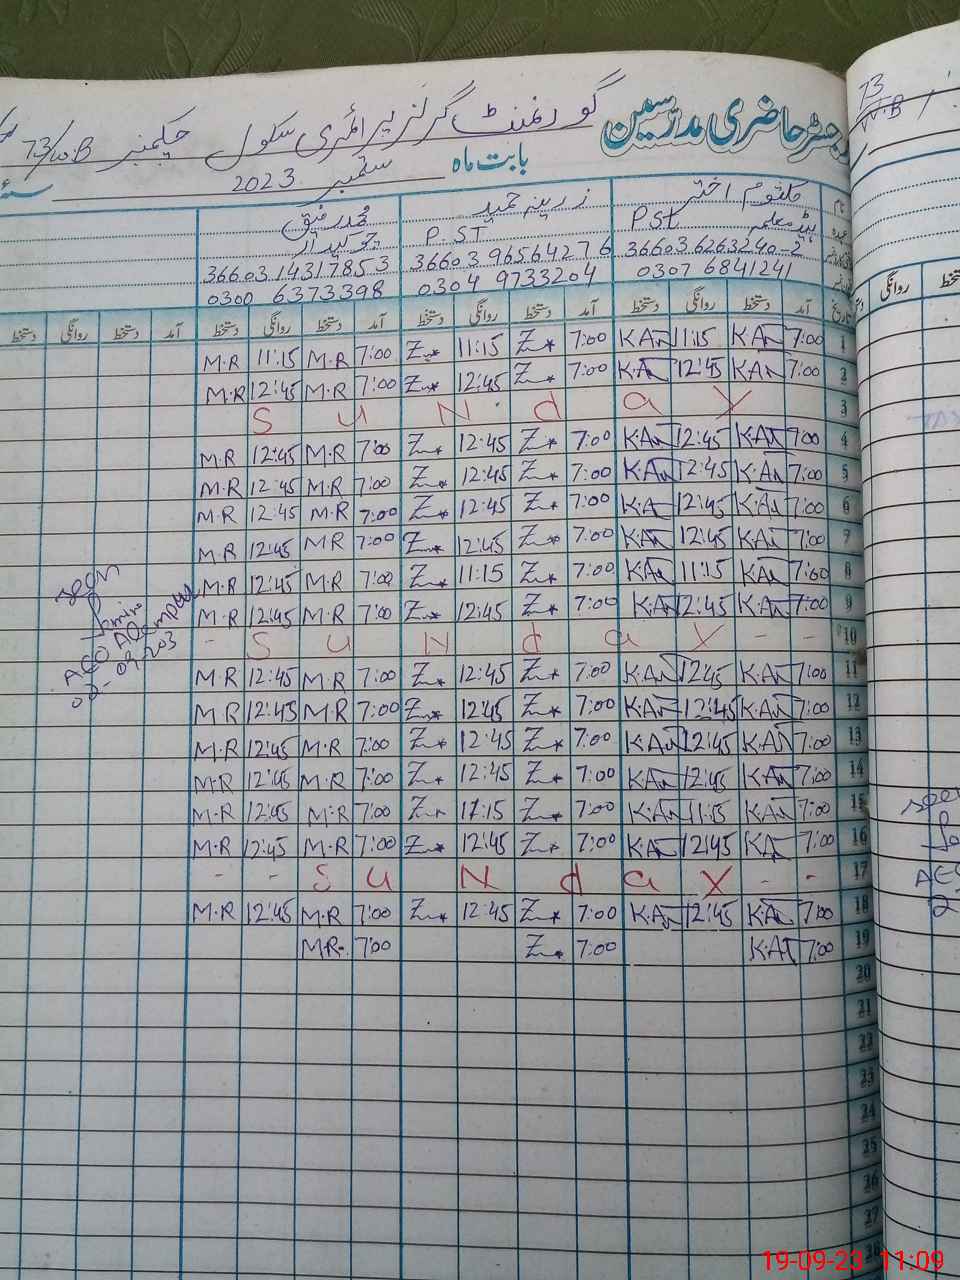 رجسٹر حاضری مدرسین گورنمنٹ گرلز پرائمری سکول چکنمبر 73/W.B
بابت ماہ ستمبر 2023
کلثوم اختر زرینہ حمید محمد رفیق
ہیڈ معلمہ PST P.ST چوکیدار
36603 6263240-2 36603 9656427 6 36603 1431785 3
0307 6841241 0304 9733204 0300 6373398
آمد دستخط روانگی دستخط آمد دستخط روانگی دستخط آمد دستخط روانگی دستخط آمد دستخط روانگی دستخط
M.R 11:15 M.R 7:00 Z 11:15 Z 7:00 K.A 11:15 K.A 7:00 1
M.R 12:45 M.R 7:00 Z 12:45 Z 7:00 K.A 12:45 K.A 7:00 2
S u N d a y 3
M.R 12:45 M.R 7:00 Z 12:45 Z 7:00 K.A 12:45 K.A 7:00 4
M.R 12:45 M.R 7:00 Z 12:45 Z 7:00 K.A 12:45 K.A 7:00 5
M.R 12:45 M.R 7:00 Z 12:45 Z 7:00 K.A 12:45 K.A 7:00 6
M.R 12:45 M.R 7:00 Z 12:45 Z 7:00 K.A 12:45 K.A 7:00 7
M.R 12:45 M.R 7:00 Z 11:15 Z 7:00 K.A 11:15 K.A 7:00 8
M.R 12:45 M.R 7:00 Z 12:45 Z 7:00 K.A 12:45 K.A 7:00 9
- S u N d a y - - 10
M.R 12:45 M.R 7:00 Z 12:45 Z 7:00 K.A 12:45 K.A 7:00 11
M.R 12:45 M.R 7:00 Z 12:45 Z 7:00 K.A 12:45 K.A 7:00 12
M.R 12:45 M.R 7:00 Z 12:45 Z 7:00 K.A 12:45 K.A 7:00 13
M.R 12:45 M.R 7:00 Z 12:45 Z 7:00 K.A 12:45 K.A 7:00 14
M.R 12:45 M.R 7:00 Z 11:15 Z 7:00 K.A 11:15 K.A 7:00 15
M.R 12:45 M.R 7:00 Z 12:45 Z 7:00 K.A 12:45 K.A 7:00 16
- - S u N d a y - - 17
M.R 12:45 M.R 7:00 Z 12:45 Z 7:00 K.A 12:45 K.A 7:00 18
M.R 7:00 Z 7:00 K.A 7:00 19
20
21
22
23
24
25
26
27
28
seen
AEO
73
W.B
روانگی
seen
19-09-23 11:09